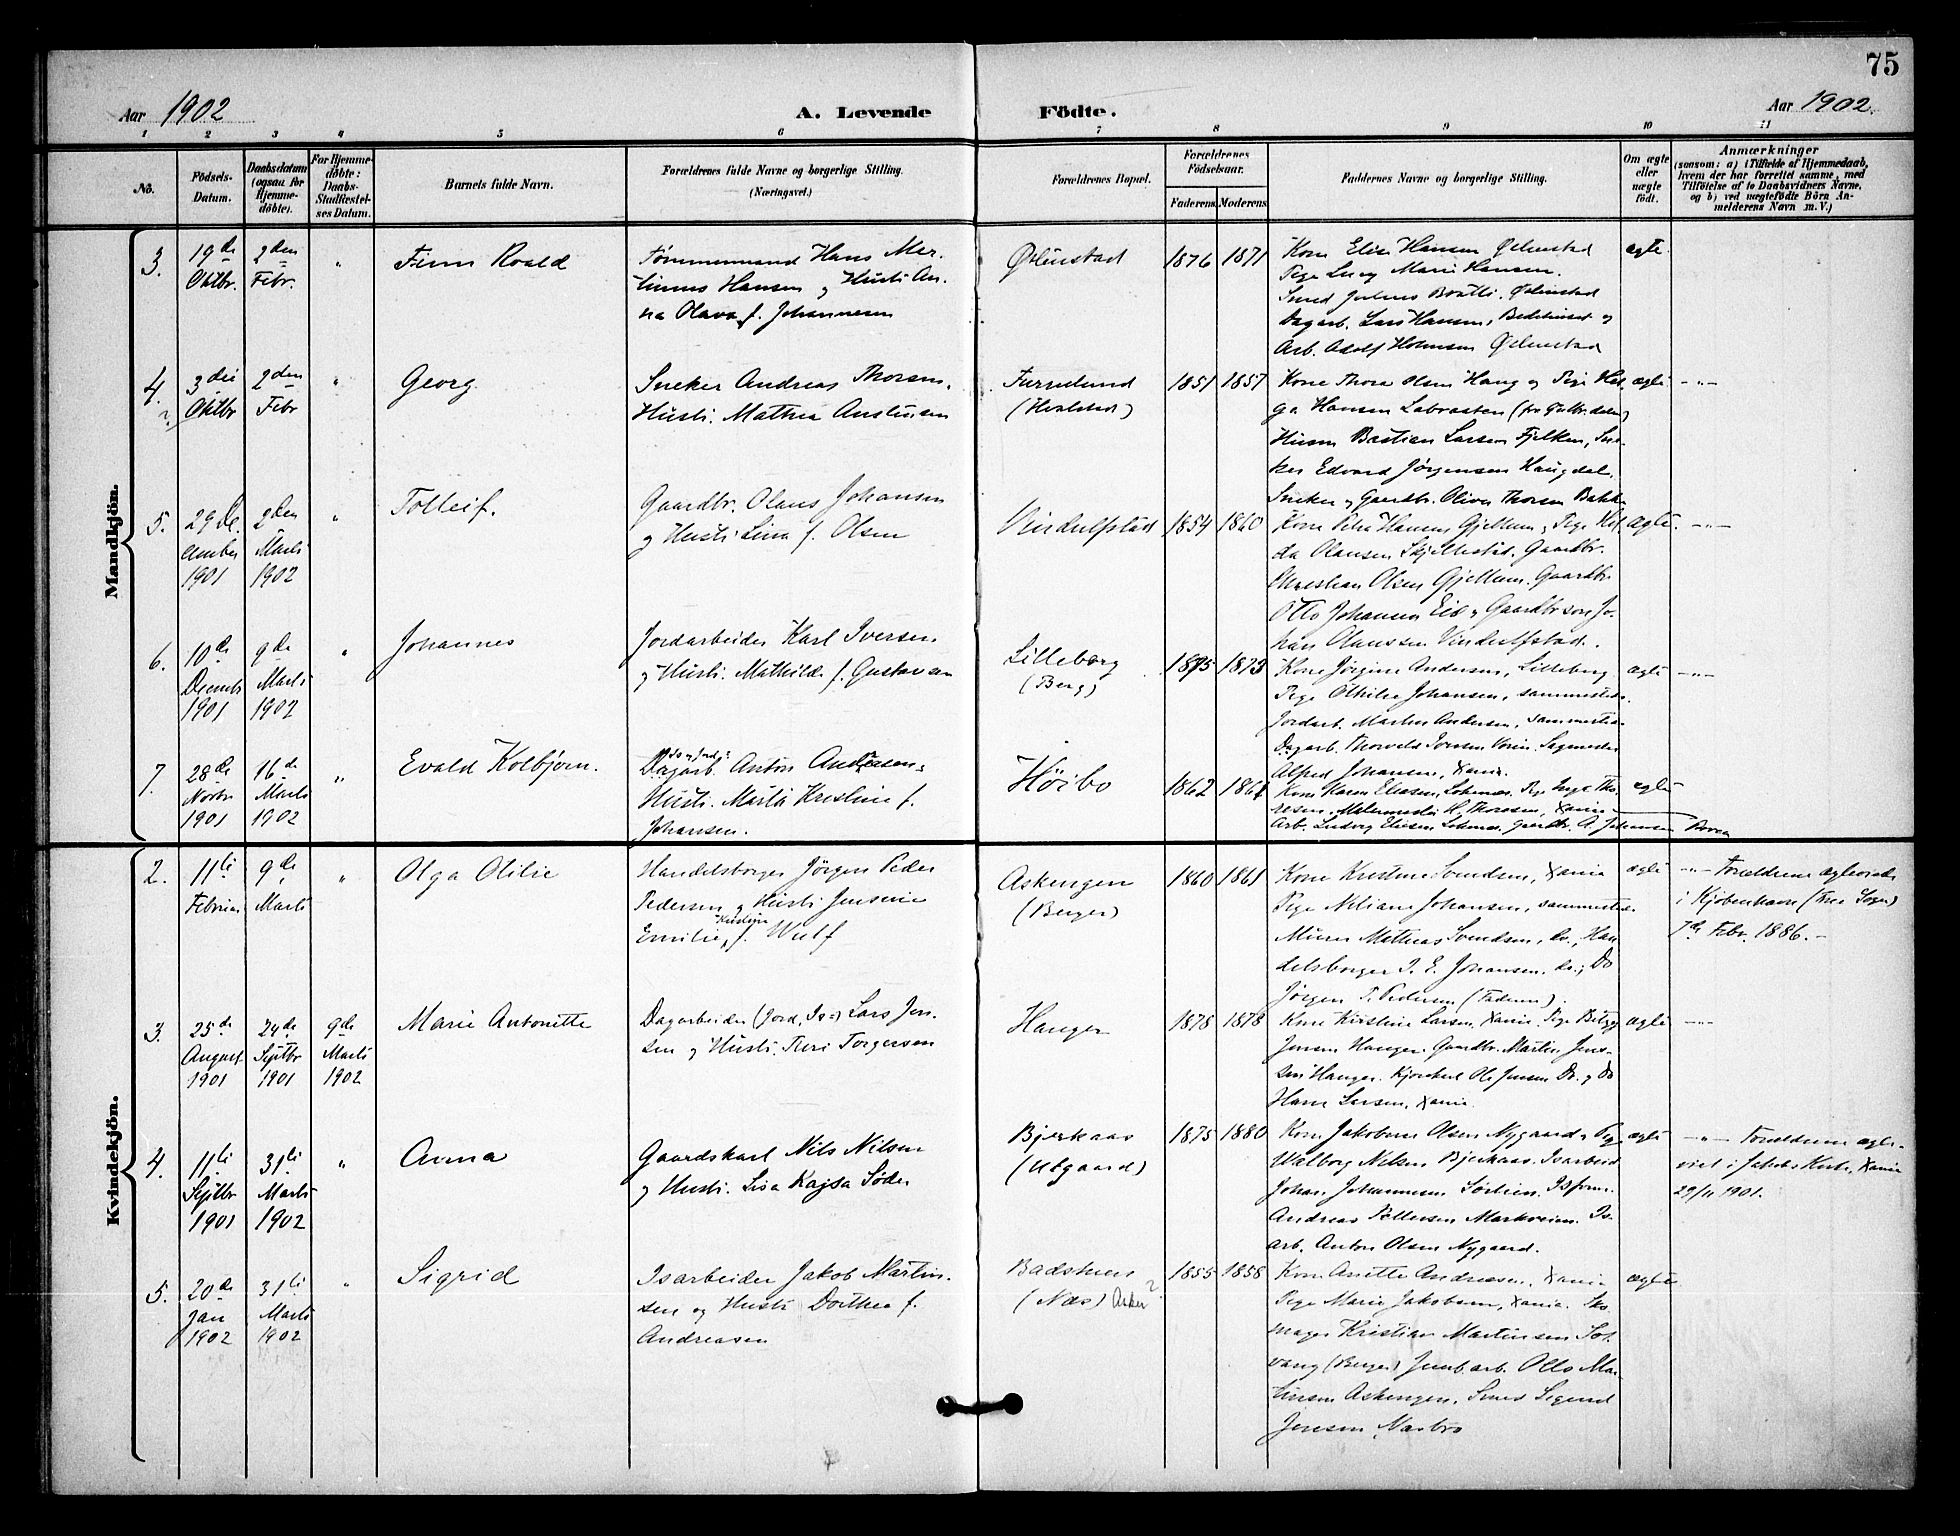 75
Aar 1902
A. Levende Födte.
Aar 1902.
1 2 3 4 5 6 7 8 9 10 11
No.
Födsels-Datum.
Daabsdatum (ogsaa for Hjemmedöbte).
For Hjemmedöbte: Daabs-Stadfæstelses Datum.
Barnets fulde Navn.
Forældrenes fulde Navne og borgerlige Stilling.
(Næringsvei.)
Forældrenes Bopæl.
Forældrenes Födselsaar.
Faderens. Moderens.
Faddernes Navne og borgerlige Stilling.
Om ægte eller uægte födt.
Anmærkninger
(saasom: a) i Tilfælde af Hjemmedaab,
hvem der har forrettet samme, med
Tilföielse af to Daabsvidners Navne,
og b) ved uægtefödte Börn Anmelderens Navn m. V.)
Mandkjön.
3.
19de Oktbr.
2den Febr.
"
Finn Roald
Tømmermand Hans Mar-
tinius Hansen og Hustr. An-
na Olava f. Johannesen
Ølenstad
1876 1871
Kone Elise Hansen Ølenstad
Pige Lucy Marie Hansen.
Smed Julius Bratli. Ølenstad
Dagarb. Lars Hansen, Bedehuset og
Arb. Adolf Hansen Ølenstad
ægte.
4.
?
3die Oktbr
2den Febr
"
Georg
Sneker Andreas Thorsen,
Hustr. Mathea Anstensen
Furuelund
(Hvalstad)
1851 1857
Kone Thora Olsen Haug og Pige Hel-
ga Hansen Labraaten (fra Gulbr.dalen)
Husm Bastian Larsen Fjelken, Sne-
ker Edvard Jørgensen Haugdal.
Sneker og Gaardbr. Oliver Thorsen Bakke
ægte
-"-
5.
29 De-
cember
1901
2den
Marts
1902
"
Tolleif.
Gaardbr. Olaus Johansen
og Hustr. Lina f. Olsen
Vindulfstad
1854 1860
Kone Petra Hansen Gjellum og Pige Hul-
da Olausen Skjellestad, Gaardbr.
Christian Olsen Gjellum. Gaardbr.
Otto Johansen Eid og Gaardbrsøn Jo-
han Olaussen Vindulfstad.
ægte.
-"-
6.
10de
Decemb
1901
9de
Marts
1902
"
Johannes
Jordarbeider Karl Iversen
og Hustr. Mathilde f. Gustavsen
Lilleborg
(Berg)
1875 1873
Kone Jørgine Andersen, Lilleborg
Pige Othilie Johansen, sammested.
Jordarb. Martin Andersen, sammested.
Dagarb. Thorvald Iversen
Alfred Johansen, Xania.
ægte
-"-
7.
28de
Novbr
1901
16de
Marts
1902
"
Evald Kolbjørn.
Dagarb. Anton Andreasen,
Hustr. Marta Kristine f.
Johansen.
Høibo
1862 1861
Kone Karen Eliasen, Pige Inga Tho-
resen, H. Thoresen, Xania
Arb. Ludvig Eliasen Gaardbr. A. Johansen
ægte
Kvindekjön.
2.
11te
Februar
9de
Marts
"
Olga Otilie
Handelsborger Jørgen Peder
Pedersen og Hustr. Jensine
Emilie Kristine f. Wulf
Askengen
(Berger)
1860 1861
Kone Kristine Svendsen, Xania
Pige Niliane Johansen, sammested.
Murer Mathias Svendsen, do., Han-
delsborger I. E. Johansen, do., Do
Jørgen P. Pedersen (Faderen).
ægte
-"- Forældrene ægteviede
i Kjøbenhavn (Free Sogn)
7de Febr. 1886.-
3.
25de
August
1901
24de
Septbr
1901
9de
Marts
1902
Marie Antonette
Dagarbeider (Jord, Is) Lars Jen-
sen og Hustr. Turi Torgersen
Hanger
1878 1878
Kone Kirstine Larsen, Xania. Pige Betzy
Jensen Hanger. Gaardbr. Martin Jens-
sen Hanger. Kjørekarl Ole Jensen Do. og Do
Hans Larsen, Xania.
ægte
-"-
4.
11te
Septbr
1901
31te
Marts
1902
"
Anna
Gaardskarl Nils Nilsen
og Hustr. Lisa Kajsa Søder
Bjerkaas
(Utgaard)
1875 1880
Kone Jakobine Olsen Nygaard og Pige
Walborg Nilsen Bjerkaas. Isarbeid
Johan Johannesen Isform.
Andreas Pettersen Markveien. Is-
arb. Anton Olsen Nygaard.
ægte
-"- Forældrene ægte-
viet i Jakobs Kirke, Xania
29/11 1901.
5.
20de
Jan
1902
31te
Marts
1902
"
Sigrid
Isarbeider Jakob Martin-
sen og Hustr. Dorthea f.
Andreasen
Badstuen
(Næs) Asker?
1855 1858
Kone Anette Andreasen, Xania
Pige Marie Jakobsen, Xania. Sko-
mager Kristian Martinsen Sol-
vang (Berger) Jernb.arb. Otto Mar-
tinsen Askengen, Smed Sigurd
Jensen Næsbro
ægte